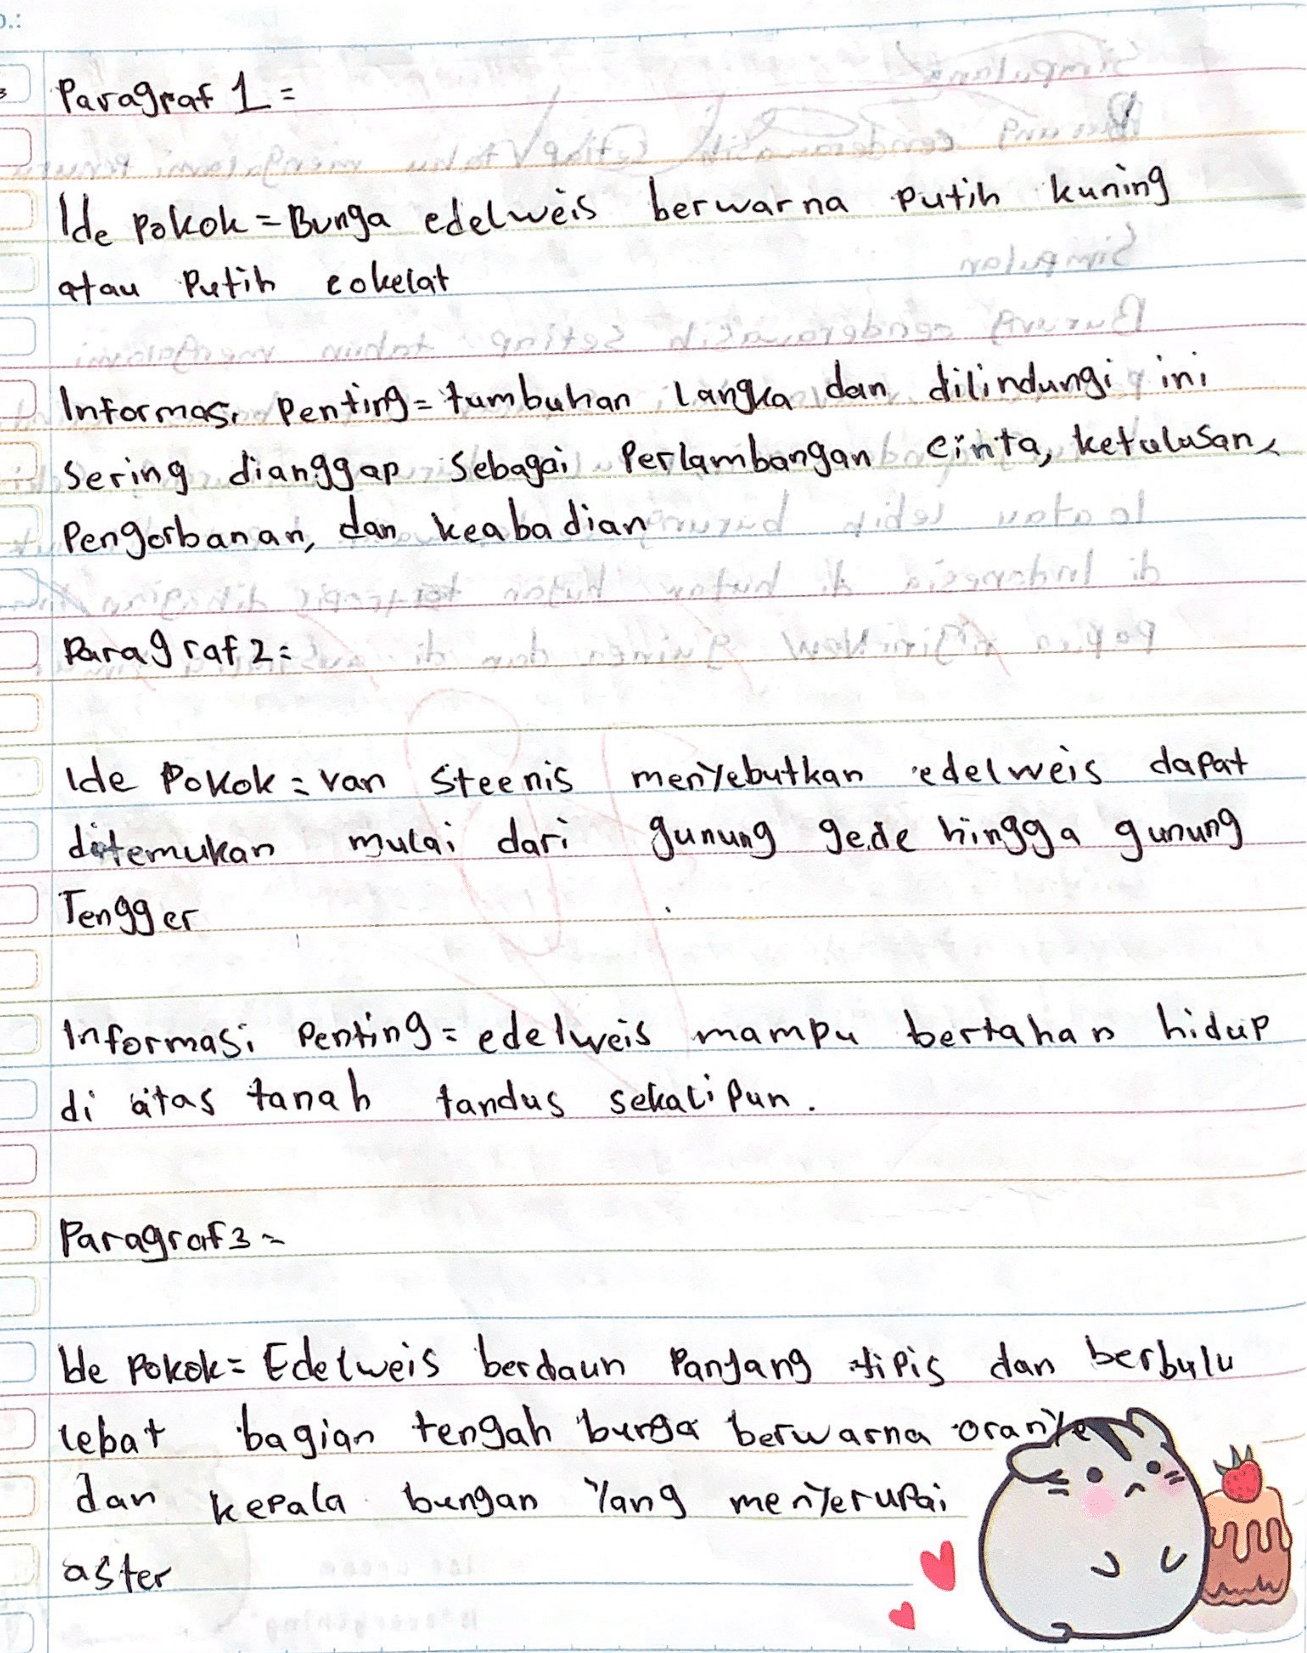 Paragraf 1 =
Ide Pokok = Bunga edelweis berwarna putih kuning
atau Putih cokelat
Informasi Penting = tumbuhan langka dan dilindungi ini
Sering dianggap Sebagai Perlambangan cinta, ketulusan,
Pengorbanan, dan keabadian
Paragraf 2 =
Ide Pokok = van Steenis menyebutkan edelweis dapat
ditemukan mulai dari gunung gede hingga gunung
Tengger
Informasi Penting = edelweis mampu bertahan hidup
di atas tanah tandus sekalipun.
Paragraf 3 =
Ide Pokok = Edelweis berdaun Panjang tipis dan berbulu
lebat bagian tengah bunga berwarna oranye
dan kepala bungan Yang menyerupai
aster